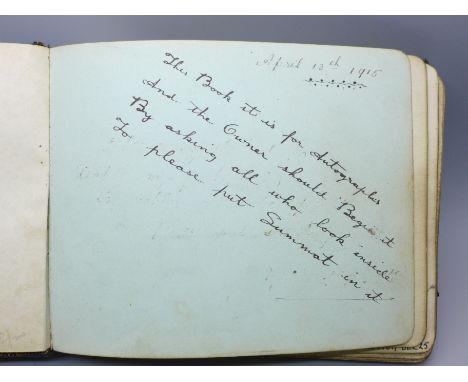 April 13th 1915
This Book it is for Autographs
And the Owner should Begin it
By asking all who look inside
To please put Summat in it